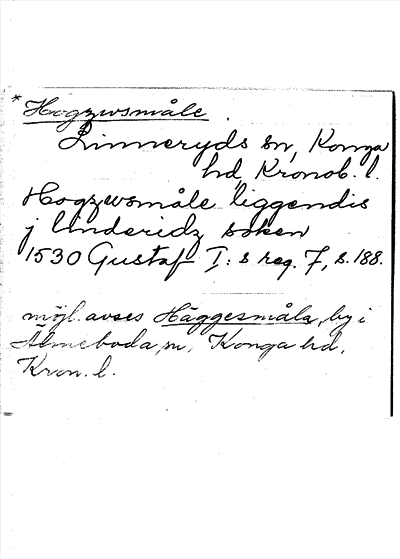 * Hogzwsmåle.
Linneryds sn, Konga
hd, Kronob. l.
Hogzwsmåle liggendis
j linderidz soken
1530 Gustaf I:s reg. 7, s. 188.
möjl. avses Häggesmåla, by i
Älmeboda sn, Konga hd,
Kron. l.